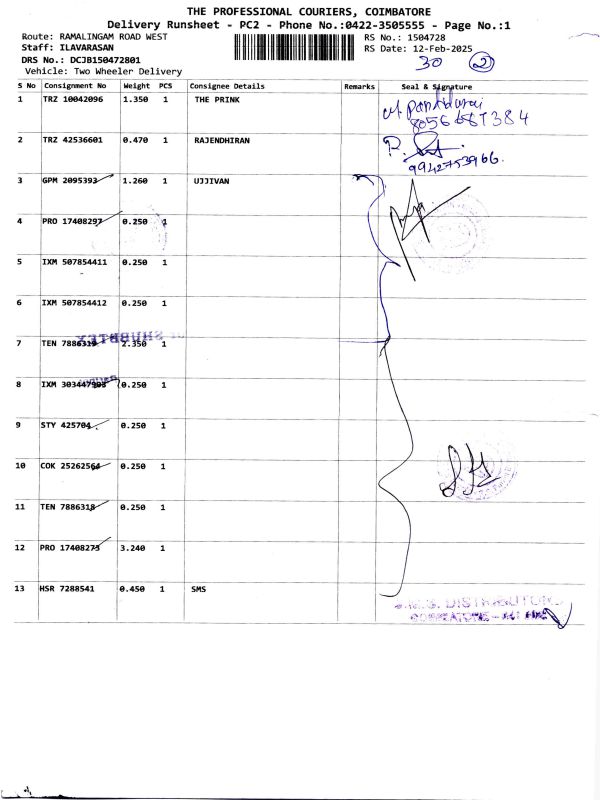 THE PROFESSIONAL COURIERS, COIMBATORE
Delivery Runsheet - PC2 - Phone No.:0422-3505555 - Page No.:1
Route: RAMALINGAM ROAD WEST RS No.: 1504728
Staff: ILAVARASAN RS Date: 12-Feb-2025
DRS No.: DCJB150472801 30 2
Vehicle: Two Wheeler Delivery
S No Consignment No Weight PCS Consignee Details Remarks Seal & Signature
1 TRZ 10042096 1.350 1 THE PRINK
2 TRZ 42536601 0.470 1 RAJENDHIRAN
9942753966
3 GPM 2095393 1.260 1 UJJIVAN
4 PRO 17408297 0.250 1
5 IXM 507854411 0.250 1
6 IXM 507854412 0.250 1
7 TEN 7886319 2.350 1
8 IXM 0.250 1
9 STY 425704 0.250 1
10 COK 25262564 0.250 1
11 TEN 7886318 0.250 1
12 PRO 17408273 3.240 1
13 HSR 7288541 0.450 1 SMS
DISTRIBUTORS